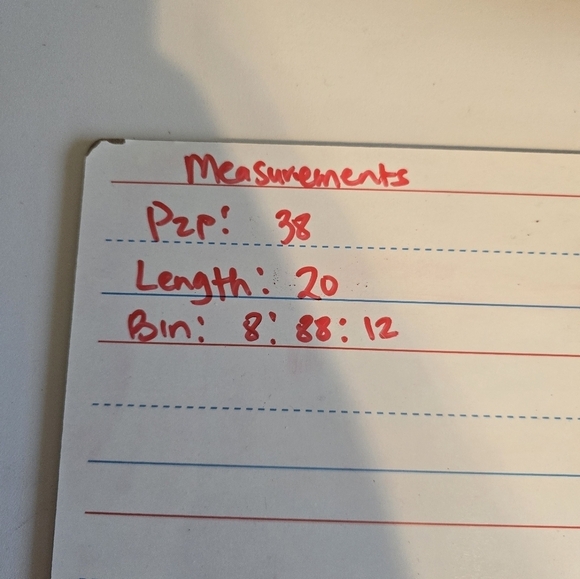 Measurements
P2P: 38
Length: 20
Bin: 8: 88: 12